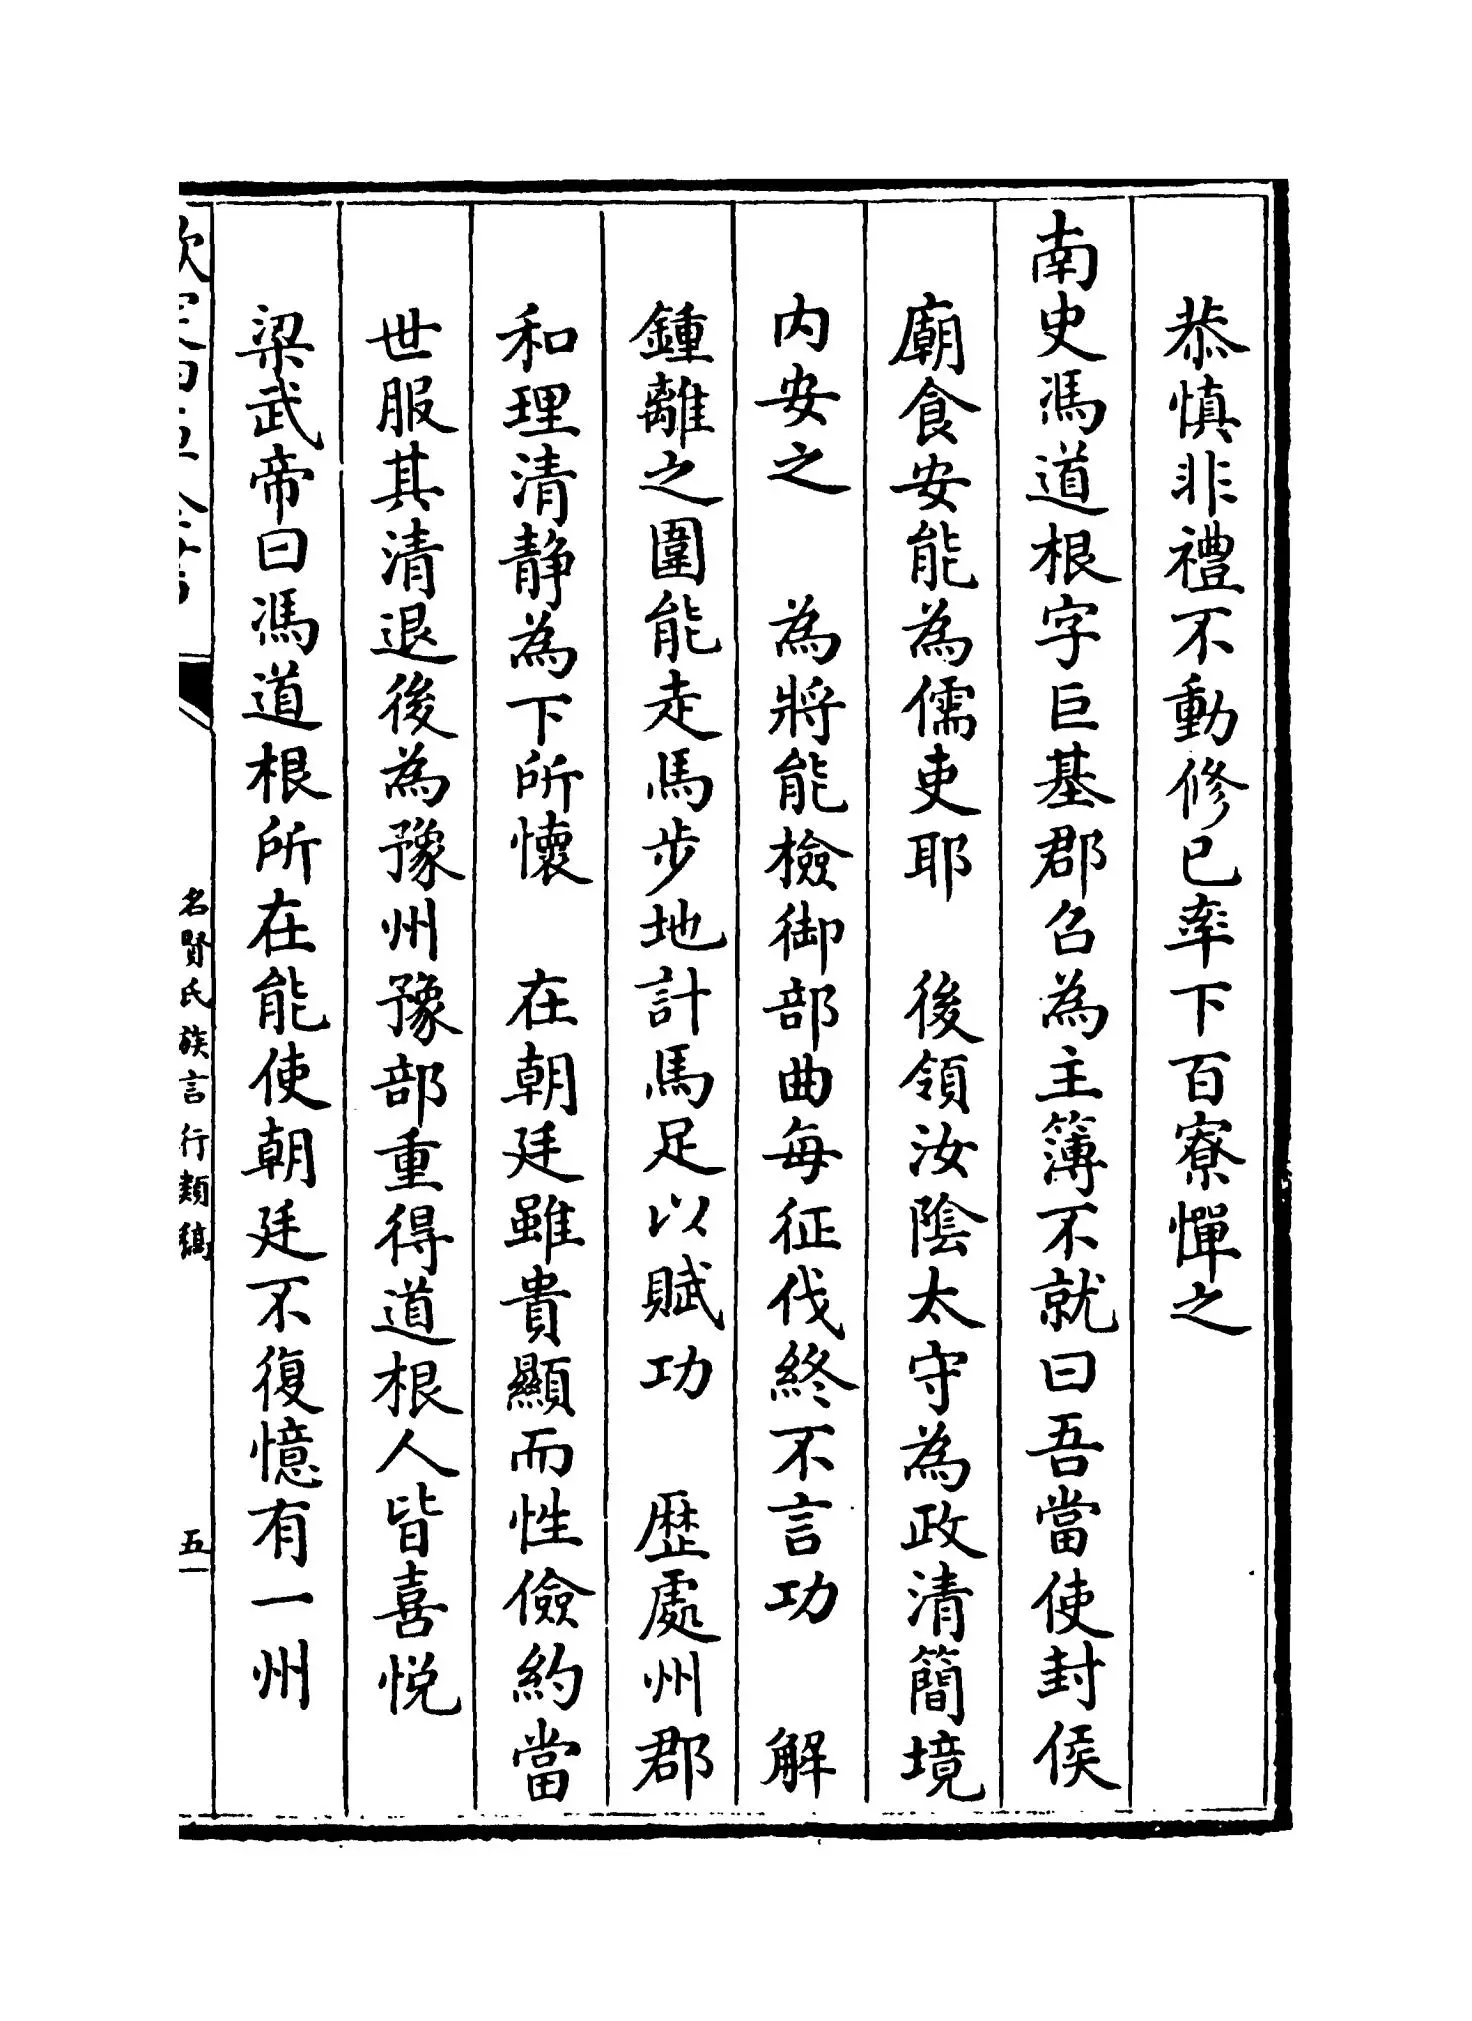 恭慎非禮不動修已率下百寮憚之
南史馮道根字巨基郡召為主簿不就曰吾當使封侯
廟食安能為儒吏耶　後領汝陰太守為政清簡境
内安之　為將能檢御部曲每征伐終不言功　解
鍾離之圍能走馬步地計馬足以賦功　歴處州郡
和理清静為下所懷　在朝廷雖貴顯而性儉約當
世服其清退後為豫州豫部重得道根人皆喜悦
梁武帝曰馮道根所在能使朝廷不復憶有一州
欽定四庫全書
名賢氏族言行類稿
五